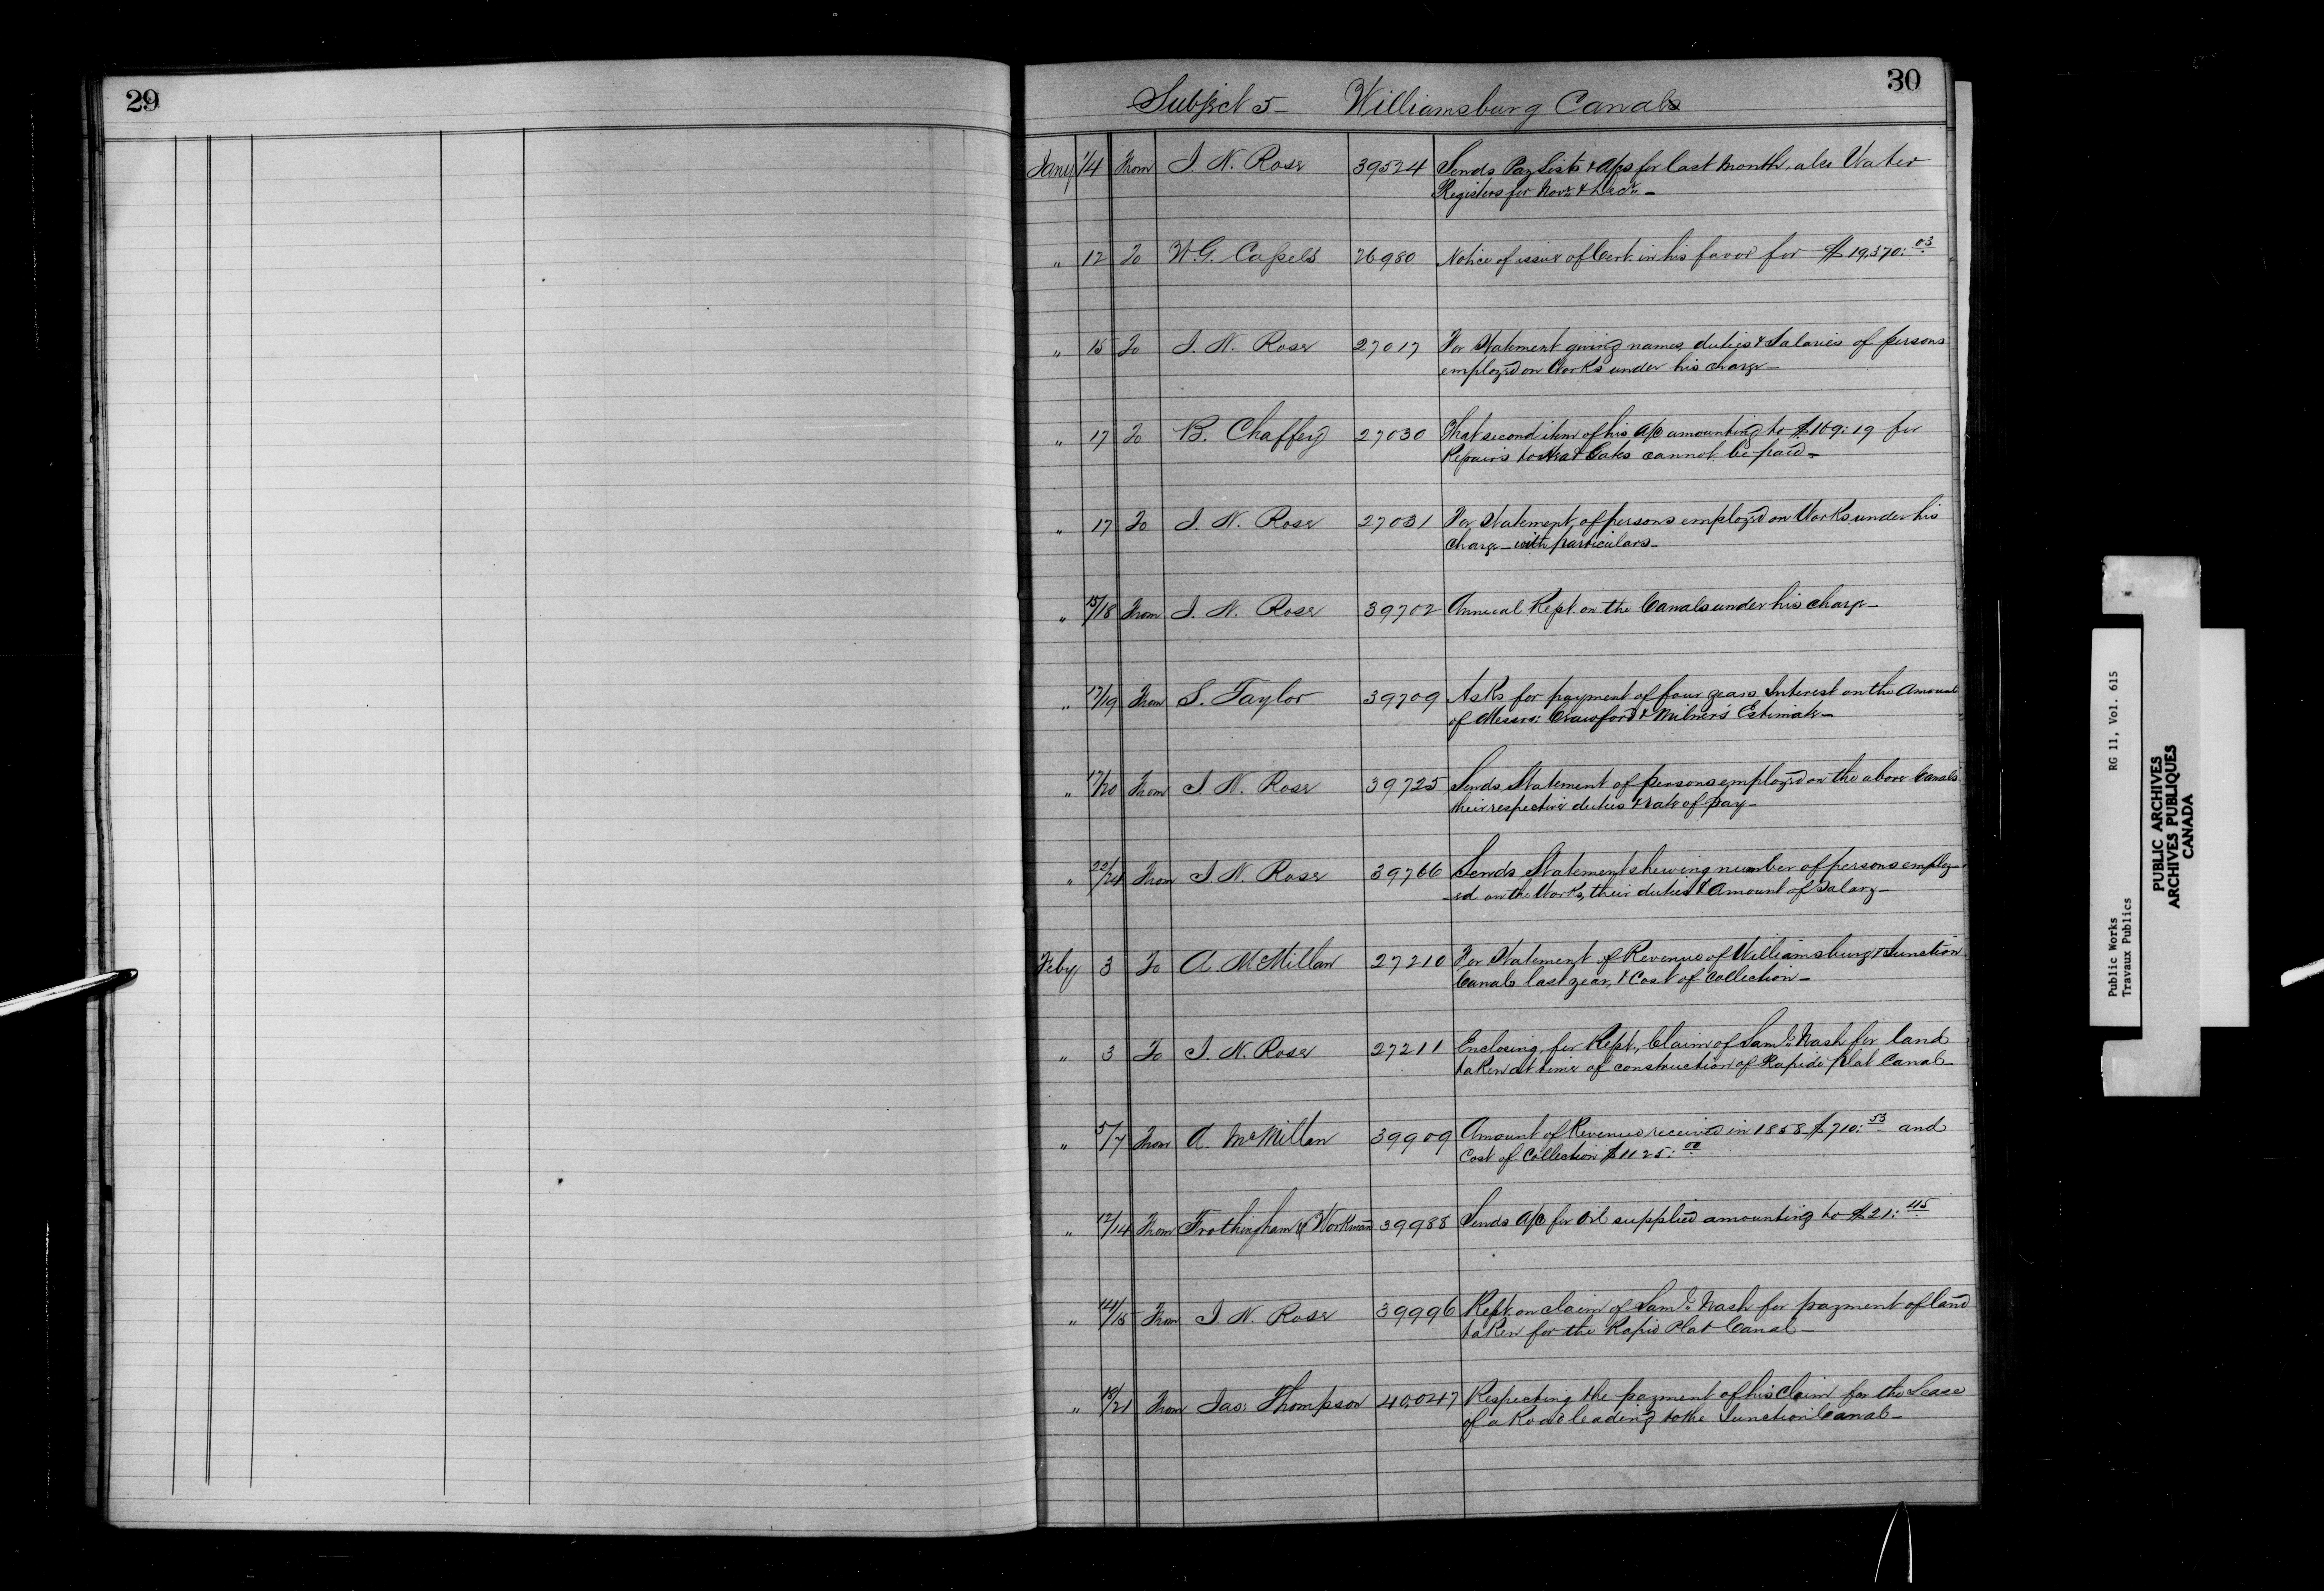 29
30
Subject 5 - Williamsburg Canals
Jany 1/4 From J. N. Rose 39524 Sends Pay Lists & A/cs for last month, also Water
Registers for Novr. & Decr. -
" 12 To W. G. Cassels 26980 Notice of issue of Cert. in his favor for $19,370:03
" 15 To J. N. Rose 27017 For Statement giving names, duties & Salaries of persons
employed on Works under his charge -
" 17 To B. Chaffey 27030 That second item of his A/c amounting to $109:19 for
Repairs to Gates cannot be paid -
" 17 To J. N. Rose 27031 For Statement of persons employed on Works under his
charge - with particulars -
" 15/18 From J. N. Rose 39702 Annual Rept. on the Canals under his charge -
" 17/19 From S. Taylor 39709 Asks for payment of four years Interest on the Amount
of Messrs: Crawford & Milner's Estimate -
" 17/20 From J. N. Rose 39725 Sends Statement of persons employed on the above Canals
their respective duties & rate of pay -
" 22/24 From J. N. Rose 39766 Sends Statement shewing number of persons employ-
-ed on the Works, their duties & Amount of Salary -
Feby 3 To A. McMillan 27210 For Statement of Revenue of Williamsburg & Junction
Canals last year, & Cost of Collection -
" 3 To J. N. Rose 27211 Enclosing, for Rept., Claim of Saml. Nash for land
taken at time of construction of Rapide Plat Canal -
" 5/7 From A. McMillan 39909 Amount of Revenue received in 1858 $710:53 and
Cost of Collection $1125:00
" 12/14 From Frothingham & Workman 39988 Sends A/c for Oil supplied amounting to $21:45
" 14/15 From J. N. Rose 39996 Rept. on claim of Saml. Nash for payment of land
taken for the Rapid Plat Canal -
" 18/21 From Jas: Thompson 40,047 Respecting the payment of his Claim for the Lease
of a Road leading to the Junction Canal -
Public Works RG 11, Vol. 615
Travaux Publics
PUBLIC ARCHIVES
ARCHIVES PUBLIQUES
CANADA